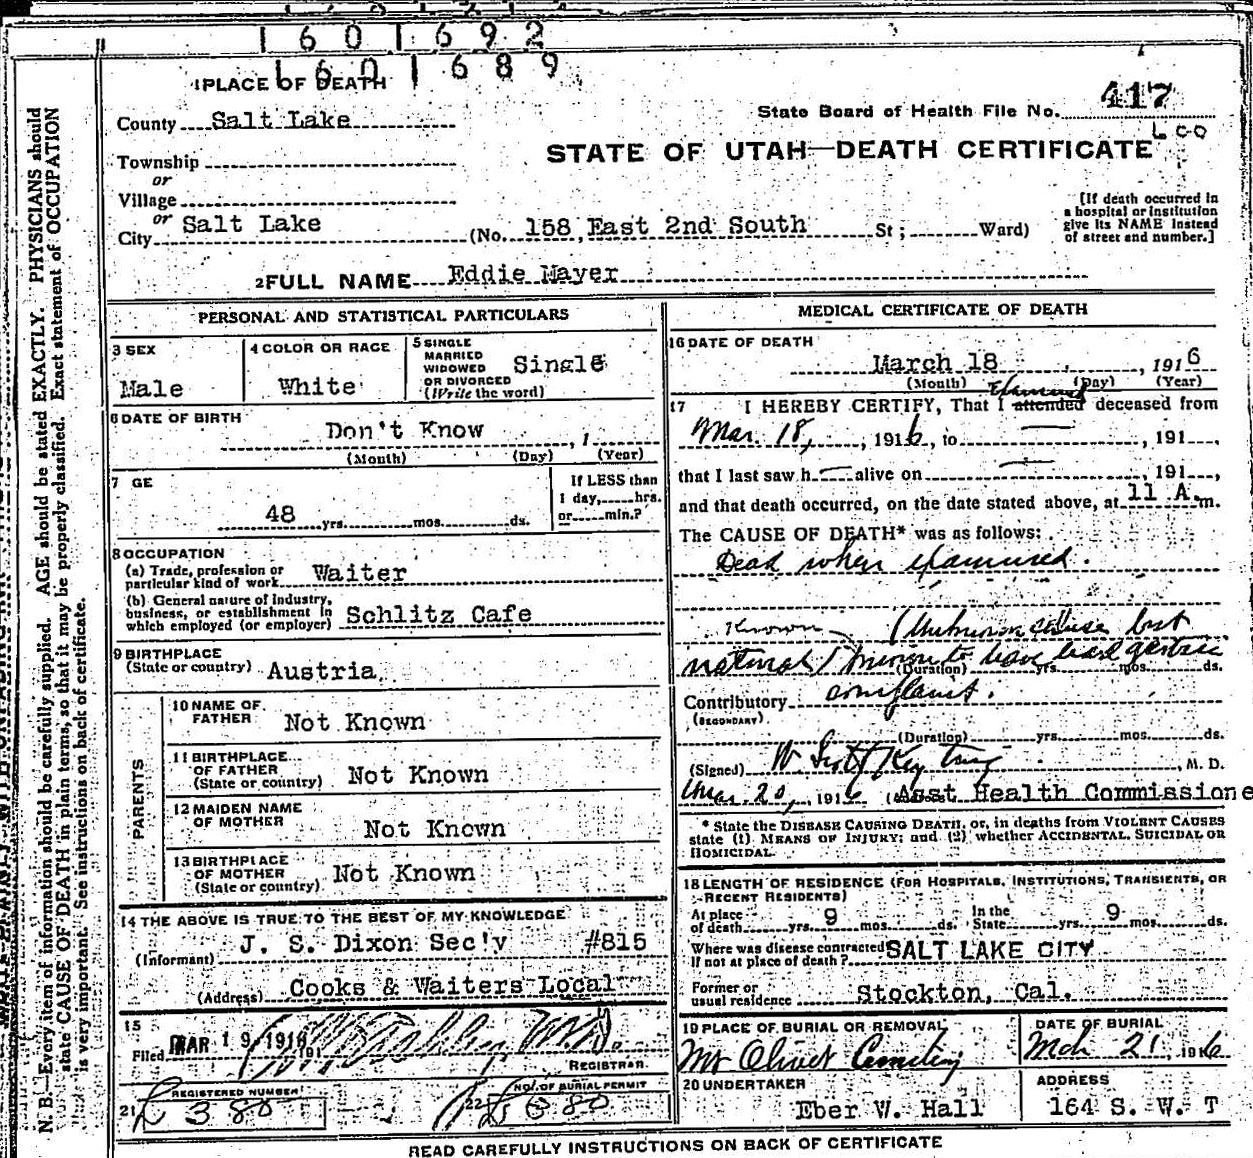 1 6 0 1 6 9 2
1 6 0 1 6 8 9
1 PLACE OF DEATH
State Board of Health File No. 417
County Salt Lake
L co
STATE OF UTAH—DEATH CERTIFICATE
Township
or
Village
or
City Salt Lake (No. 158 East 2nd South St; Ward)
[If death occurred in
a hospital or institution
give its NAME instead
of street and number.]
2 FULL NAME Eddie Mayer
PERSONAL AND STATISTICAL PARTICULARS
3 SEX
Male
4 COLOR OR RACE
White
5 SINGLE
MARRIED
WIDOWED
OR DIVORCED
(Write the word)
Single
6 DATE OF BIRTH
Don't Know , 1
(Month) (Day) (Year)
7 GE
48 yrs. mos. ds.
If LESS than
1 day, hrs.
or min.?
8 OCCUPATION
(a) Trade, profession or
particular kind of work Waiter
(b) General nature of industry,
business, or establishment in
which employed (or employer) Schlitz Cafe
9 BIRTHPLACE
(State or country) Austria
PARENTS
10 NAME OF
FATHER Not Known
11 BIRTHPLACE
OF FATHER
(State or country) Not Known
12 MAIDEN NAME
OF MOTHER Not Known
13 BIRTHPLACE
OF MOTHER
(State or country) Not Known
14 THE ABOVE IS TRUE TO THE BEST OF MY KNOWLEDGE
(Informant) J. S. Dixon Sec'y #815
(Address) Cooks & Waiters Local
15
Filed MAR 19 1916 191
M.D.
REGISTRAR.
REGISTERED NUMBER
21 380
NO. OF BURIAL PERMIT
22 380
MEDICAL CERTIFICATE OF DEATH
16 DATE OF DEATH
March 18 , 1916
(Month) (Day) (Year)
examined
17 I HEREBY CERTIFY, That I attended deceased from
Mar. 18, , 1916, to , 191 ,
that I last saw h alive on , 191 ,
and that death occurred, on the date stated above, at 11 A. m.
The CAUSE OF DEATH* was as follows:
Dead when examined.
Known (Unknown cause but
natural) known to have had gastric
(Duration) yrs. mos. ds.
Contributory complaint.
(SECONDARY)
(Duration) yrs. mos. ds.
(Signed) W Scott Keyting , M. D.
Mar. 20, , 1916 Asst Health Commissione
* State the DISEASE CAUSING DEATH, or, in deaths from VIOLENT CAUSES
state (1) MEANS OF INJURY; and (2) whether ACCIDENTAL, SUICIDAL OR
HOMICIDAL.
18 LENGTH OF RESIDENCE (FOR HOSPITALS, INSTITUTIONS, TRANSIENTS, OR
RECENT RESIDENTS)
At place
of death yrs. 9 mos. ds.
In the
State yrs. 9 mos. ds.
Where was disease contracted SALT LAKE CITY
If not at place of death?
Former or
usual residence Stockton, Cal.
19 PLACE OF BURIAL OR REMOVAL
Mt Olivet Cemetery
DATE OF BURIAL
Mch 21, 1916
20 UNDERTAKER
Eber W. Hall
ADDRESS
164 S. W. T
READ CAREFULLY INSTRUCTIONS ON BACK OF CERTIFICATE
N. B.—Every item of information should be carefully supplied. AGE should be stated EXACTLY. PHYSICIANS should
state CAUSE OF DEATH in plain terms, so that it may be properly classified. Exact statement of OCCUPATION
is very important. See instructions on back of certificate.